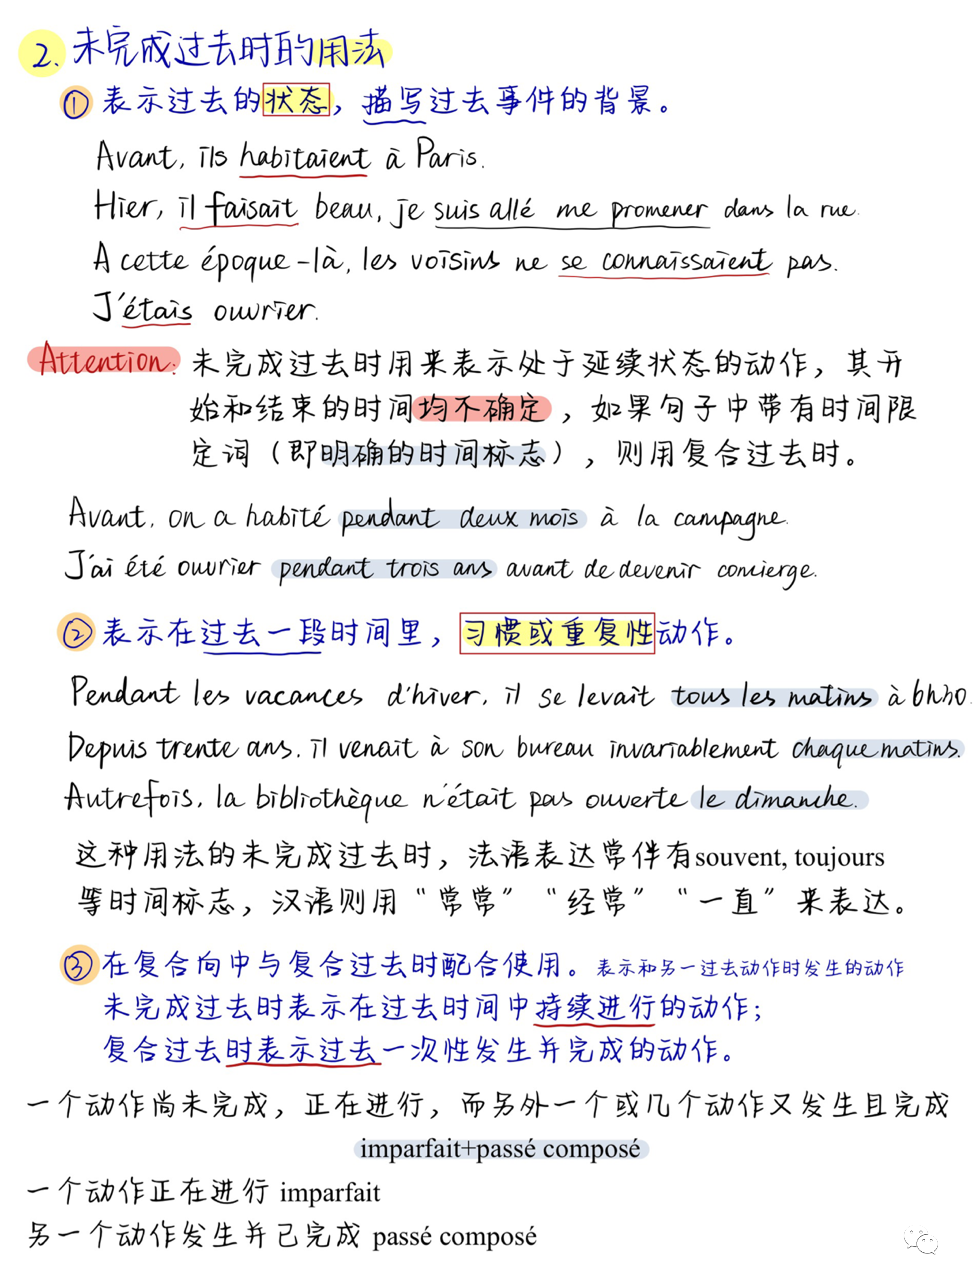 2. 未完成过去时的用法
① 表示过去的状态，描写过去事件的背景。
Avant, ils habitaient à Paris.
Hier, il faisait beau, je suis allé me promener dans la rue.
A cette époque-là, les voisins ne se connaissaient pas.
J'étais ouvrier.
Attention: 未完成过去时用来表示处于延续状态的动作，其开
始和结束的时间均不确定，如果句子中带有时间限
定词（即明确的时间标志），则用复合过去时。
Avant, on a habité pendant deux mois à la campagne.
J'ai été ouvrier pendant trois ans avant de devenir concierge.
② 表示在过去一段时间里，习惯或重复性动作。
Pendant les vacances d'hiver, il se levait tous les matins à 6h30.
Depuis trente ans, il venait à son bureau invariablement chaque matins.
Autrefois, la bibliothèque n'était pas ouverte le dimanche.
这种用法的未完成过去时，法语表达常伴有souvent, toujours
等时间标志，汉语则用“常常”“经常”“一直”来表达。
③ 在复合向中与复合过去时配合使用。表示和另一过去动作时发生的动作
未完成过去时表示在过去时间中持续进行的动作；
复合过去时表示过去一次性发生并完成的动作。
一个动作尚未完成，正在进行，而另外一个或几个动作又发生且完成
imparfait+passé composé
一个动作正在进行 imparfait
另一个动作发生并已完成 passé composé